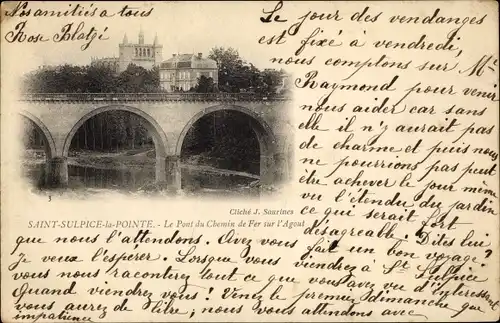 Nos amitiés a tous
Rose Blatgé
Le jour des vendanges
est fixé a vendredi,
nous comptons sur Mr
Raymond pour venir
nous aider car sans
elle il n'y aurait pas
de charme et puis nous
ne pourrions pas peut
être achever le jour même
vu l'étendu du jardin
ce qui serait fort
désagreable! Dites lui
que nous l'attendons. Avez vous fait un bon voyage?
je veux l'esperer. Lorsque vous viendrez à St Sulpice
vous nous raconterez tout ce que vous avez vu d'interessant
Quand viendrez vous! Venez le premier dimanche que
vous aurez de libre; nous vous attendons avec
impatience
Cliché J. Sourines
SAINT-SULPICE-la-POINTE. - Le Pont du Chemin de Fer sur l'Agout